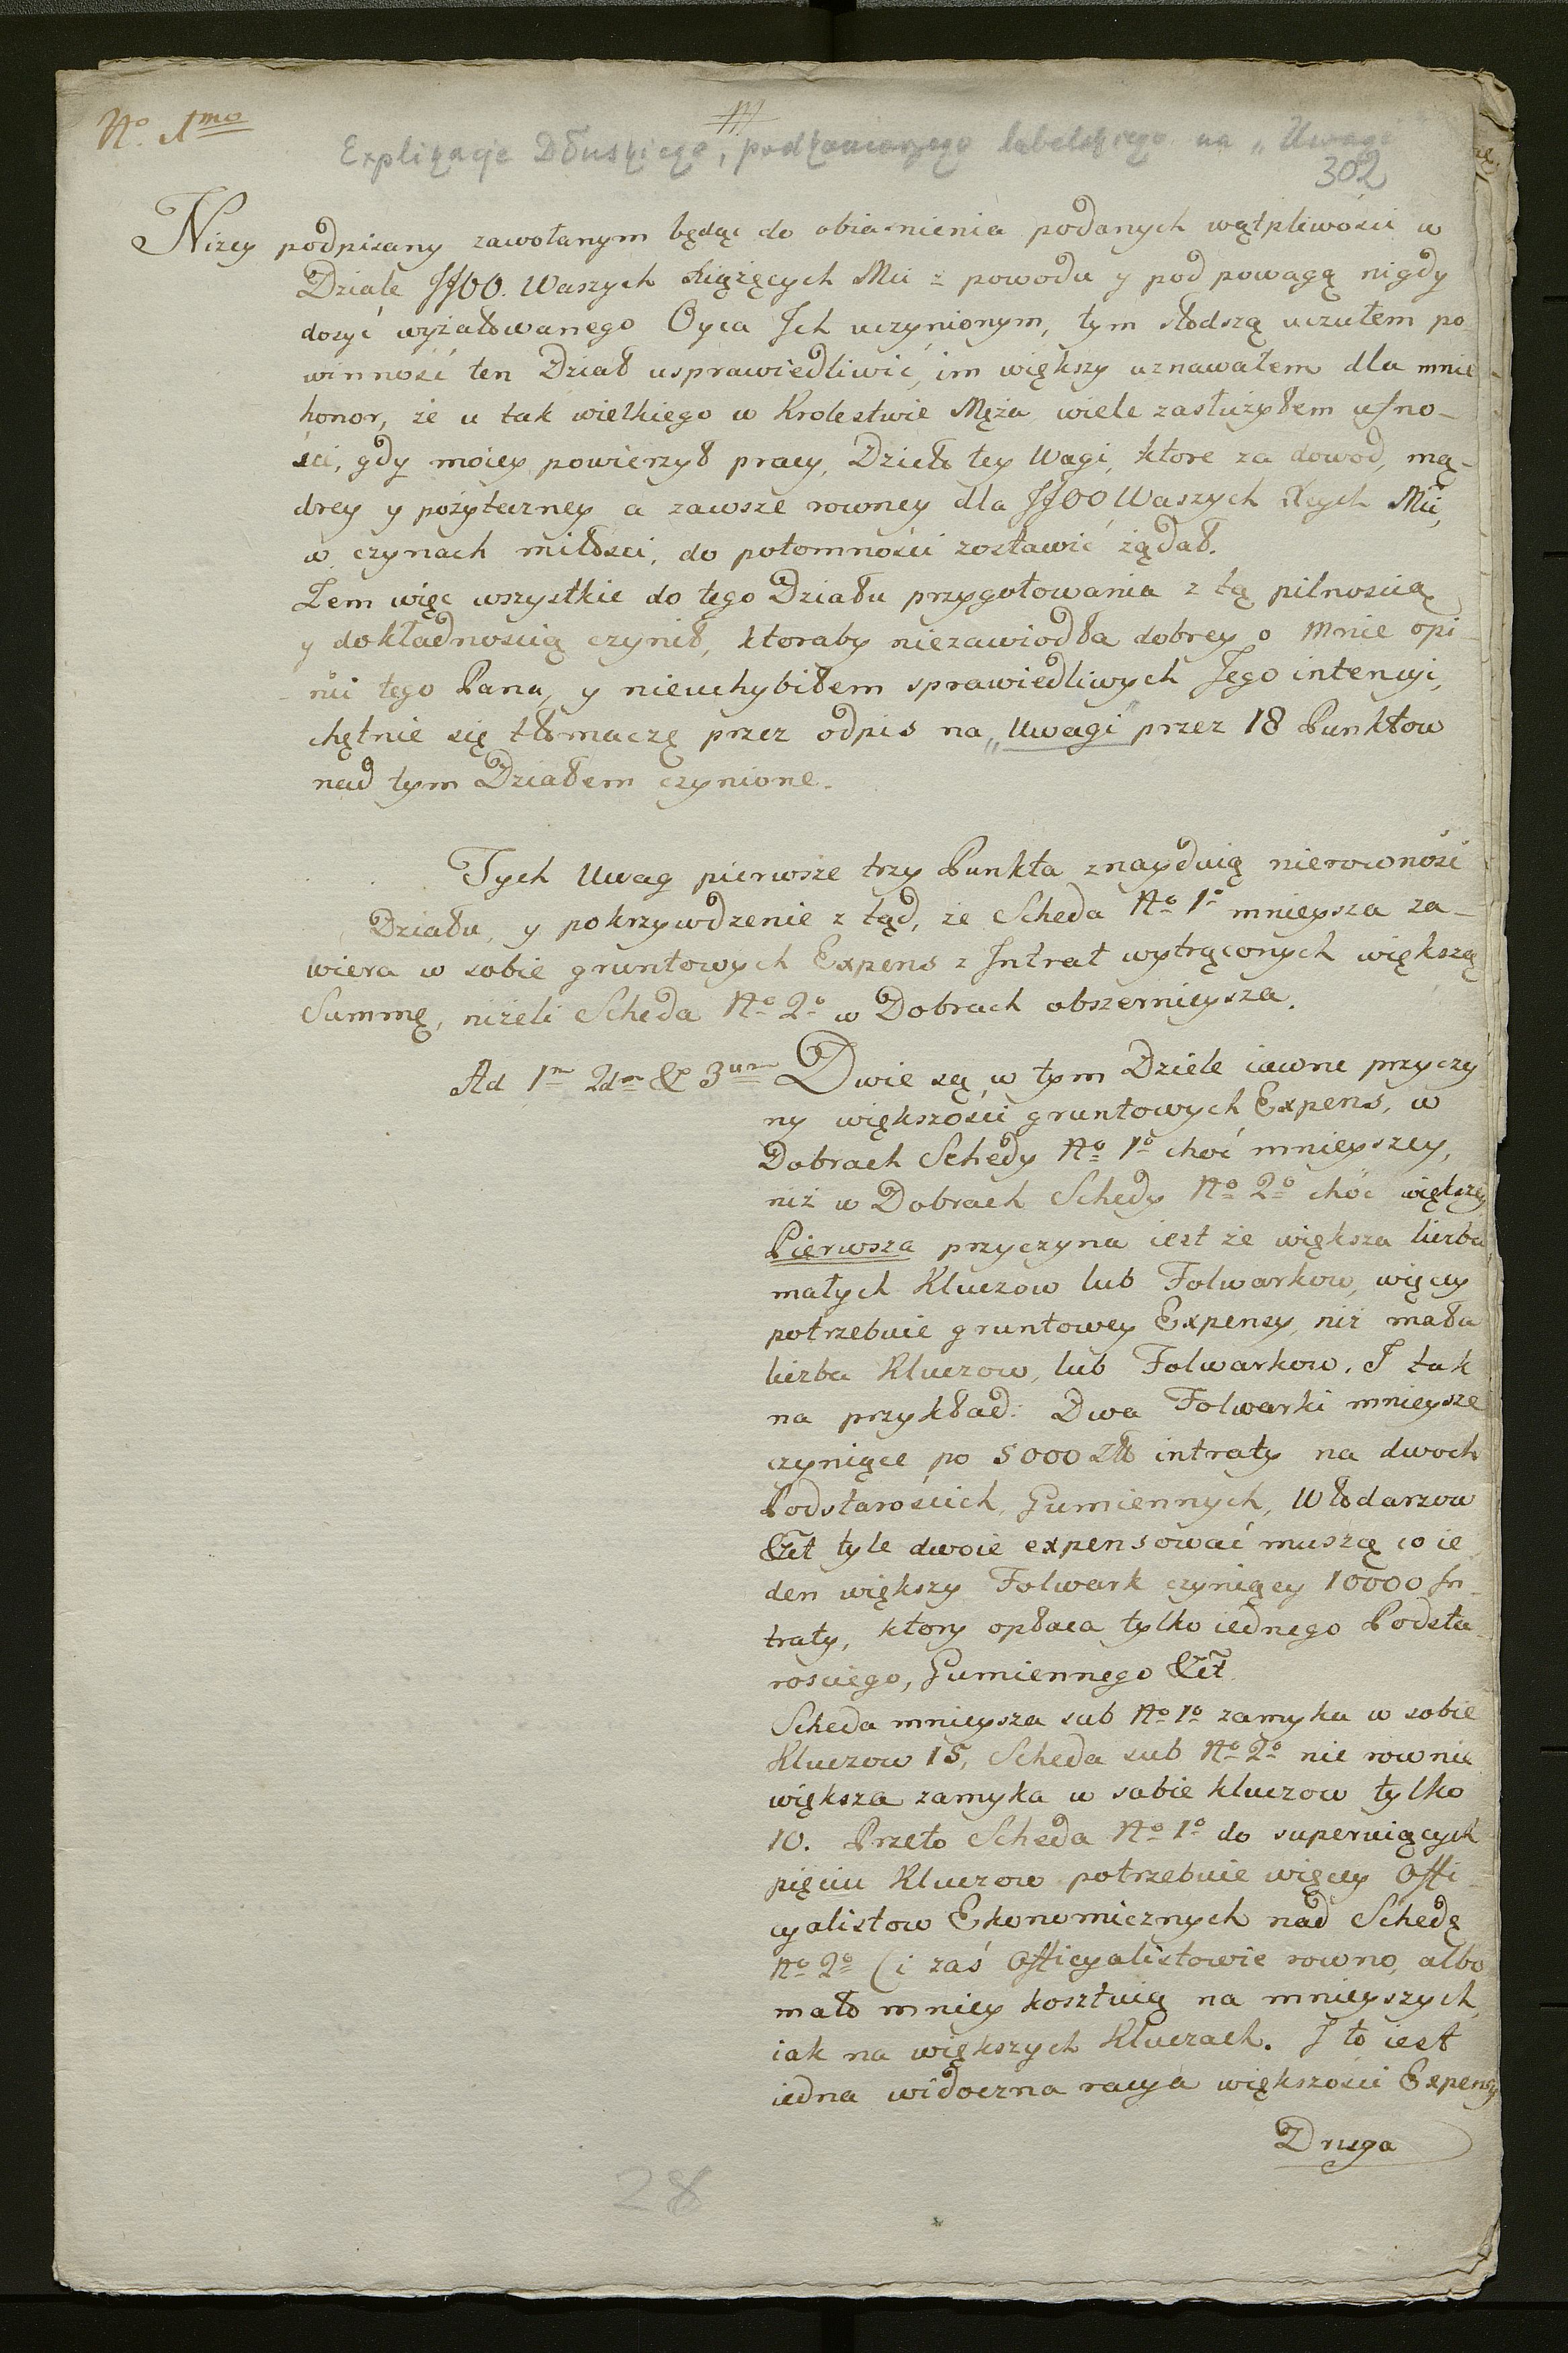 No. 1mo
Explikacje Dłuskiego, podkomorzego lubelskiego na „Uwagi"
302
Nizey podpisany zawołanym będąc do obiasnienia podanych wątpliwości w
Dziale JJOO. Waszych Xiążęcych Mci z powodu y pod powagą nigdy
dosyć wyżałowanego Oyca Ich uczynionym, tym słodszą uczułem po-
winność ten Dział usprawiedliwić, im większy uznawałem dla mnie
honor, że u tak wielkiego w Krolestwie Męża wiele zasłużyłem ufno-
ści, gdy moiey powierzył pracy, Dzieło tey Wagi, ktore za dowod, mą-
drey y pożyteczney a zawsze rowney dla JJOO Waszych Xcych Mci,
w czynach miłosci, do potomności zostawić żądał.
Żem więc wszystkie do tego Działu przygotowania z tą pilnoscią
y dokładnoscią czynił, ktoraby niezawiodła dobrey o mnie opi-
nii tego Pana, y nieuchybiłem sprawiedliwych Jego intencyi,
chętnie się tłomaczę przez odpis na „Uwagi" przez 18 Punktow
nad tym Działem czynione.
Tych Uwag pierwsze trzy Punkta znayduią nierowność
Działu, y pokrzywdzenie z tąd, że Scheda No 1o mnieysza za-
wiera w sobie gruntowych Expens z Intrat wytrąconych większą
Summę, niżeli Scheda No 2o w Dobrach obszernieysza.
Ad 1m 2dm & 3um Dwie są w tym Dziele iawne przyczy
ny większości gruntowych Expens, w
Dobrach Schedy No 1o choć mnieyszey,
niż w Dobrach Schedy No 2o choć większey
Pierwsza przyczyna iest że większa liczba
małych Kluczow lub Folwarkow, więcey
potrzebuie gruntowey Expensy, niż mała
liczba Kluczow, lub Folwarkow. I tak
na przykład: Dwa Folwarki mnieysze
czyniące po 5000 Złł intraty na dwoch
Podstarościch, Gumiennych, Włodarzow
&ct tyle dwoie expensować muszą co ie
den większy Folwark czyniący 10000 In-
traty, ktory opłaca tylko iednego Podsta-
rosciego, Gumiennego &ct
Scheda mnieysza sub No 1o zamyka w sobie
Kluczow 15, Scheda sub No 2o nie rownie
większa zamyka w sobie kluczow tylko
10. Przeto Scheda No 1o do superuiących
pięciu Kluczow potrzebuie więcey Offi-
cyalistow Ekonomicznych nad Schedę
No 2o (i zaś Officyalistowie rowno, albo
mało mniey kosztuią na mnieyszych,
iak na większych Kluczach. I to iest
iedna widoczna racya większości Expensy
Druga
28